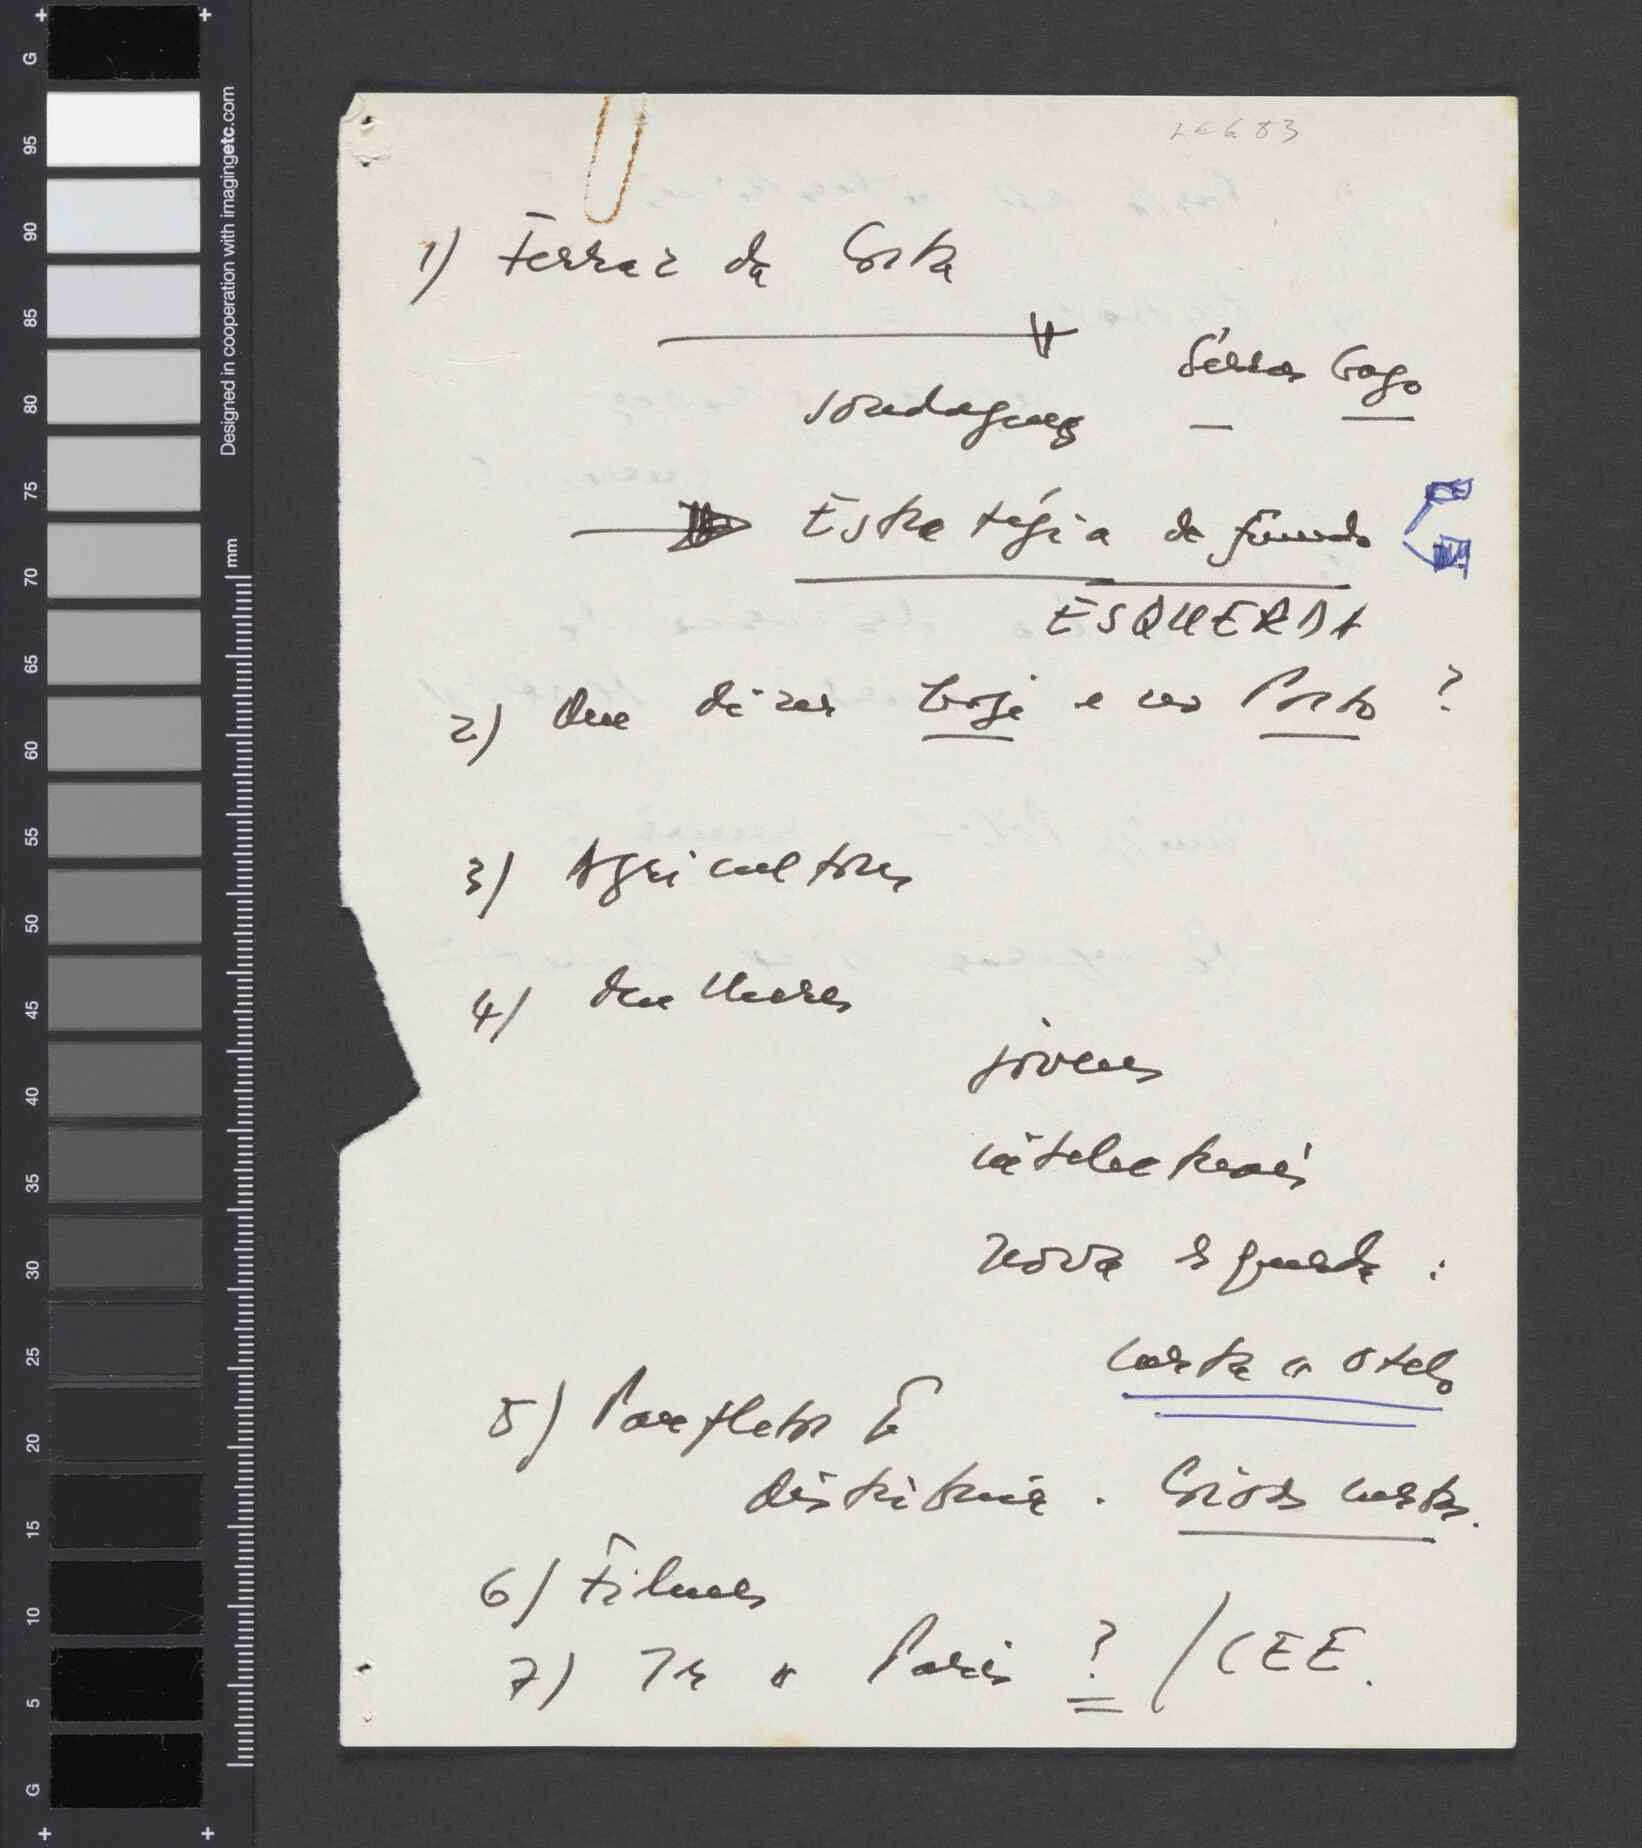 1) Ferraz da Costa
Sérvas Gago
sondagens
Estratégia de fundo
ESQUERDA
2) Que dizer hoje e no Porto ?
3) Agricultores
4) Mulheres
jovens
intelectuais
nova esquerda :
carta a Otelo
5) Panfletos
distribuir .
6) Filmes
7) Ir a Paris ? / CEE.
G
95
90
85
80
75
70
65
60
55
50
45
40
35
30
25
20
15
10
5
G
mm
Designed in cooperation with imagingetc.com